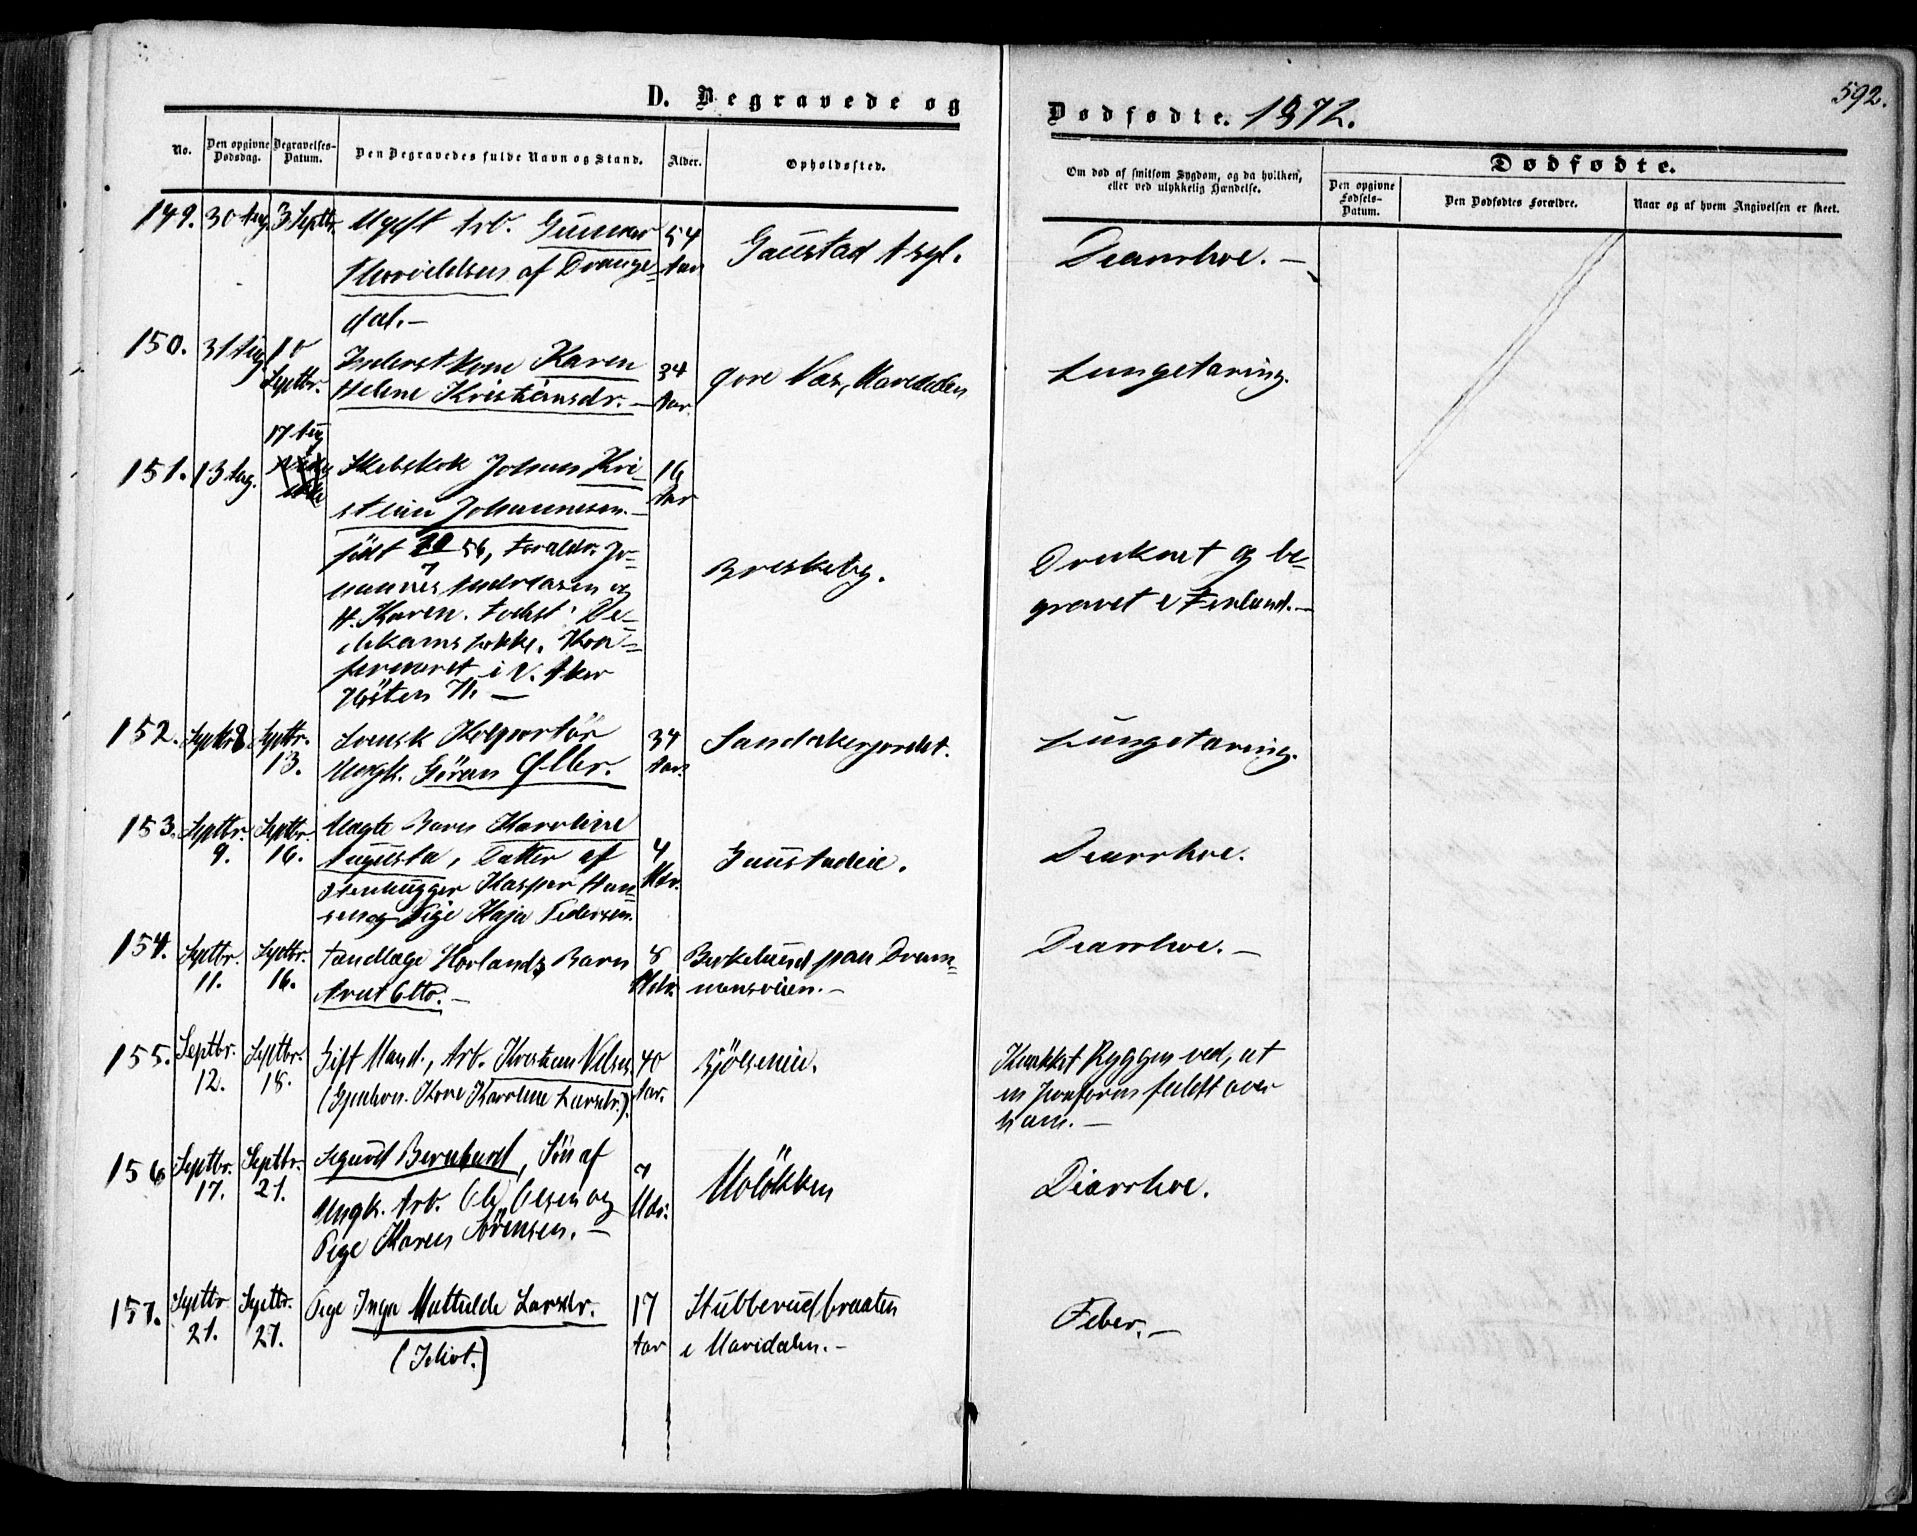 D. Begravede og
Dødfødte. 1872.
592.
No.
Den opgivne Dødsdag.
Begravelses-Datum.
Den Begravedes fulde Navn og Stand.
Alder.
Opholdssted.
Om død af smitsom Sygdom, og da hvilken,
eller ved ulykkelig Hændelse.
Dødfødte.
Den opgivne Fødsels-Datum.
Den Dødfødtes Forældre.
Naar og af hvem Angivelsen er skeet.
149. 30 Aug. 3 Septbr. Ugift Arb. Gunnar 54
af Drange- Aar Gaustad Asyl. Diarrhoe. –
dal. –
150. 31 Aug. 10 Septbr. Inderstkone Karen 34
Helene Kristiansdr. – Aar Næs, Maridalen Lungetæring.
17 Aug
151. 13 Aug. Skibskok Johan Kri- 16
stian Johannesen. – Aar
født 56, Forældr. Jo-
hannes Andreasen og Briskeby. Druknet og be-
H. Karen. Fødest: De- gravet i Finland. –
Kon-
firmeret i V. Aker
Høsten 71. –
152. Septbr 8. Septbr. 13. Svensk Kolportör 34
Ungk. Göran Aar Sandakerjordet. Lungetæring.
153. Septbr. 9. Septbr. 16. Uægte Barn Karoline
Augusta, Datter af 4
Stenhugger Kasper Han- Mdr. Gaustadeie. Diarrhoe.
sen og Pige Kaja Pedersen.
154. Septbr. 11. Septbr. 16. Tandlæge Horlands Barn 8 Birkelund paa Dram- Diarrhoe. –
Otto. – Mdr. mensveien. –
155. Septbr. 12. Septbr. 18. Gift Mand, Arb. Kristian Nilsen 40 Bjölseneie. Knækket Ryggen ved, at
(Kone Karoline Larsdr.) Aar. en faldt over
ham. –
156 Septbr. 17. Septbr. 21. Sigurd Bernhard, Sön af 7
Ungk. Arb. Ole Olsen og Mdr. Molökken Diarrhoe.
Pige Karen Sörensen. –
157. Septbr 21. Septbr. 27. Pige Inga Mathilde Larsdr. 17 Stubberudbraaten Feber. –
(Idiot.) Aar i Maridalen. –